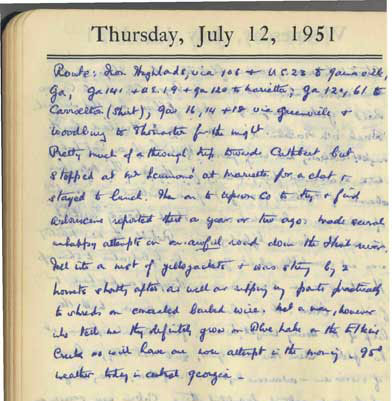 Thursday, July 12, 1951
Route: From Highlands, via 106 + U.S. 23 to Gainesville
Ga; Ga 141 + U.S. 19 + Ga 120 to Marietta; Ga 120, 61 to
Carrollton (Short); Gas 16, 14 + 18 via Greenville +
Woodbury to Thomaston for the night
Pretty much of a through trip towards Cuthbert but
stopped at Mr at Marietta for a chat +
stayed to lunch. Then on to Upson Co to try + find
reported there a year or two ago. made several
unhappy attempts on an awful road down the Flint river.
Fell into a nest of yellowjackets + was stung by 2
hornets shortly after as well as ripping my pants practically
to shreds on concealed barbed wire. Met a man, however
who tells me they definitely grow on Blue Lake on the
Creek so will have one more attempt in the morning. 95°
weather today in central Georgia -